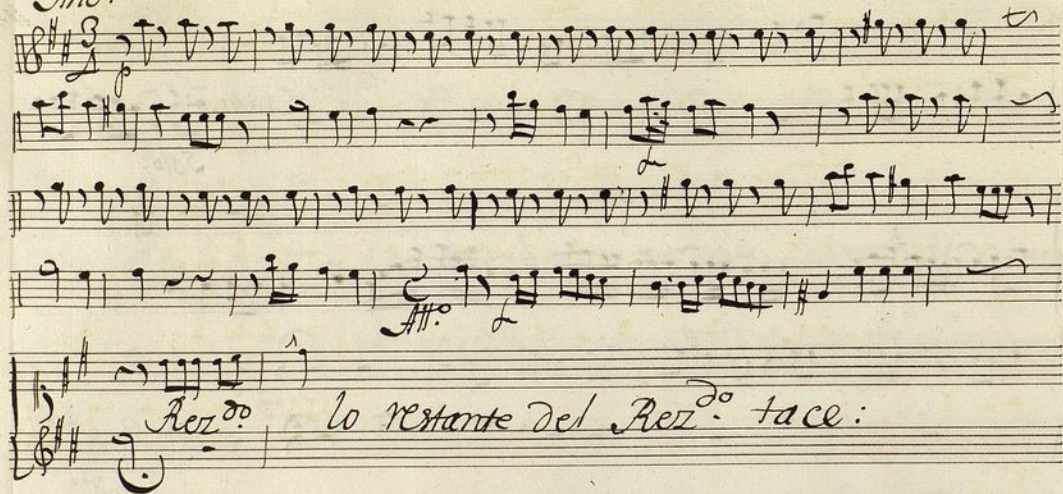 3
4
p
All.º
Rez.do lo restante del Rez.do tace: